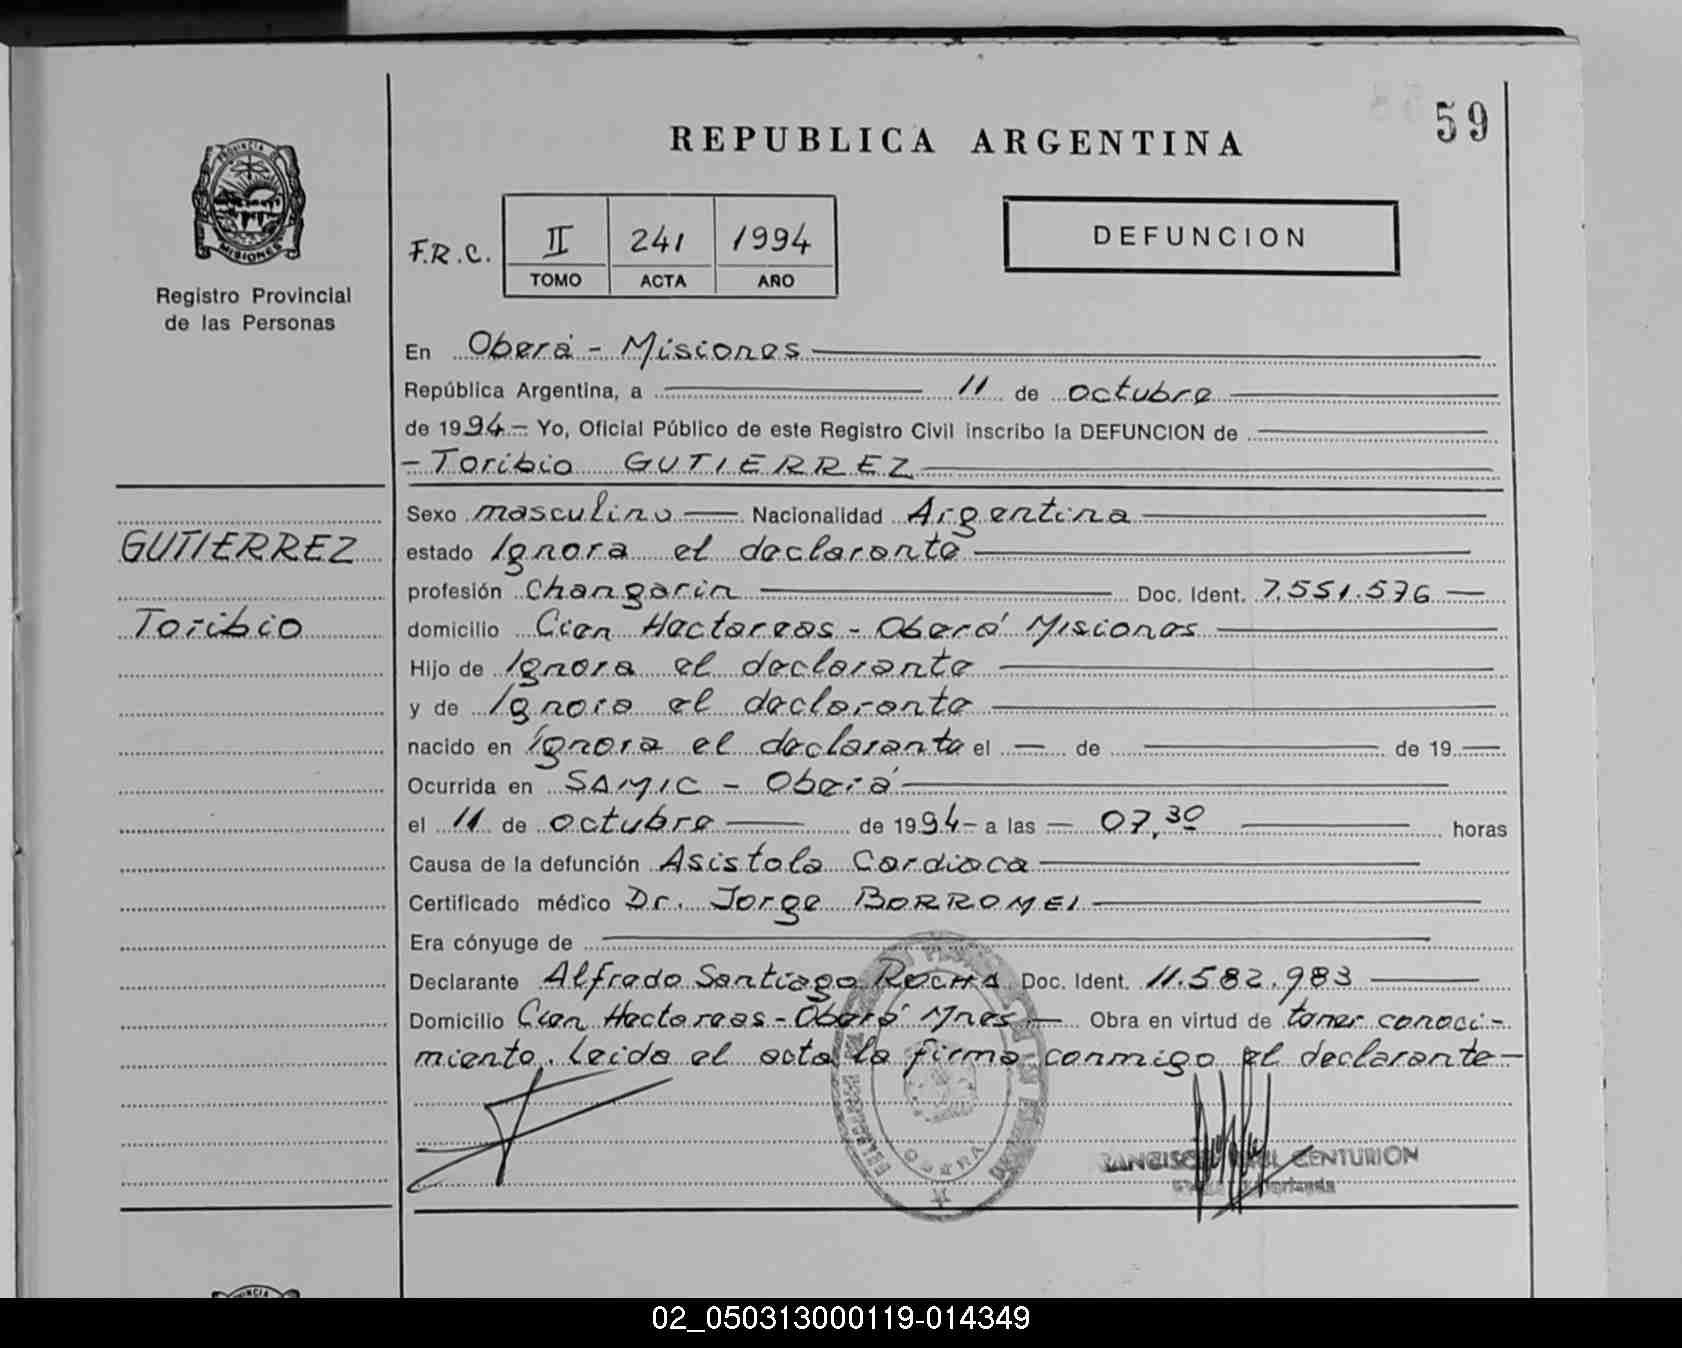 59
REPUBLICA ARGENTINA
PROVINCIA DE
MISIONES
Registro Provincial
de las Personas
F.R.C. II 241 1994
TOMO ACTA AÑO
DEFUNCION
En Oberá - Misiones
República Argentina, a 11 de octubre
de 1994- Yo, Oficial Público de este Registro Civil inscribo la DEFUNCION de
- Toribio GUTIERREZ
GUTIERREZ
Toribio
Sexo masculino Nacionalidad Argentina
estado Ignora el declarante
profesión Changarin Doc. Ident. 7.551.576
domicilio Cien Hectareas - Oberá Misiones
Hijo de Ignora el declarante
y de Ignora el declarante
nacido en Ignora el declarante el - de de 19
Ocurrida en SAMIC - Oberá
el 11 de octubre de 1994- a las - 07,30 horas
Causa de la defunción Asistola Cardiaca
Certificado médico Dr. Jorge BORROMEI
Era cónyuge de
Declarante Alfredo Santiago ROCHA Doc. Ident. 11.582.983
Domicilio Cien Hectareas - Oberá Mnes. Obra en virtud de tener conoci-
miento. Leida el acta la firma conmigo el declarante -
OBERA
CENTURION
02_050313000119-014349